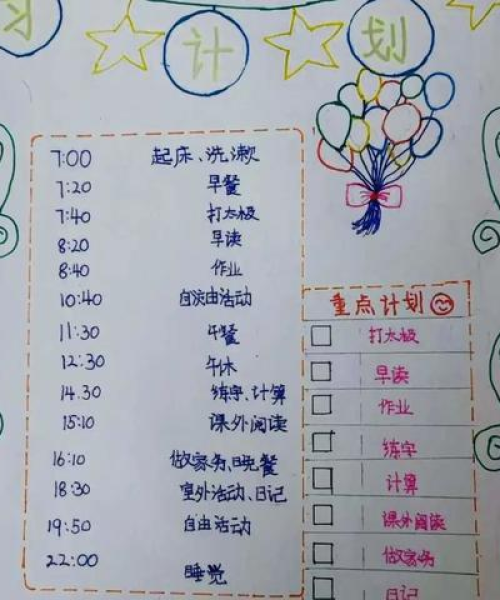 习 计 划
7:00 起床、洗漱
7:20 早餐
7:40 打太极
8:20 早读
8:40 作业
10:40 自由活动
11:30 午餐
12:30 午休
14.30 练字、计算
15:10 课外阅读
16:10 做家务、晚餐
18:30 室外活动、日记
19:50 自由活动
22:00 睡觉
重点计划
打太极
早读
作业
练字
计算
课外阅读
做家务
日记